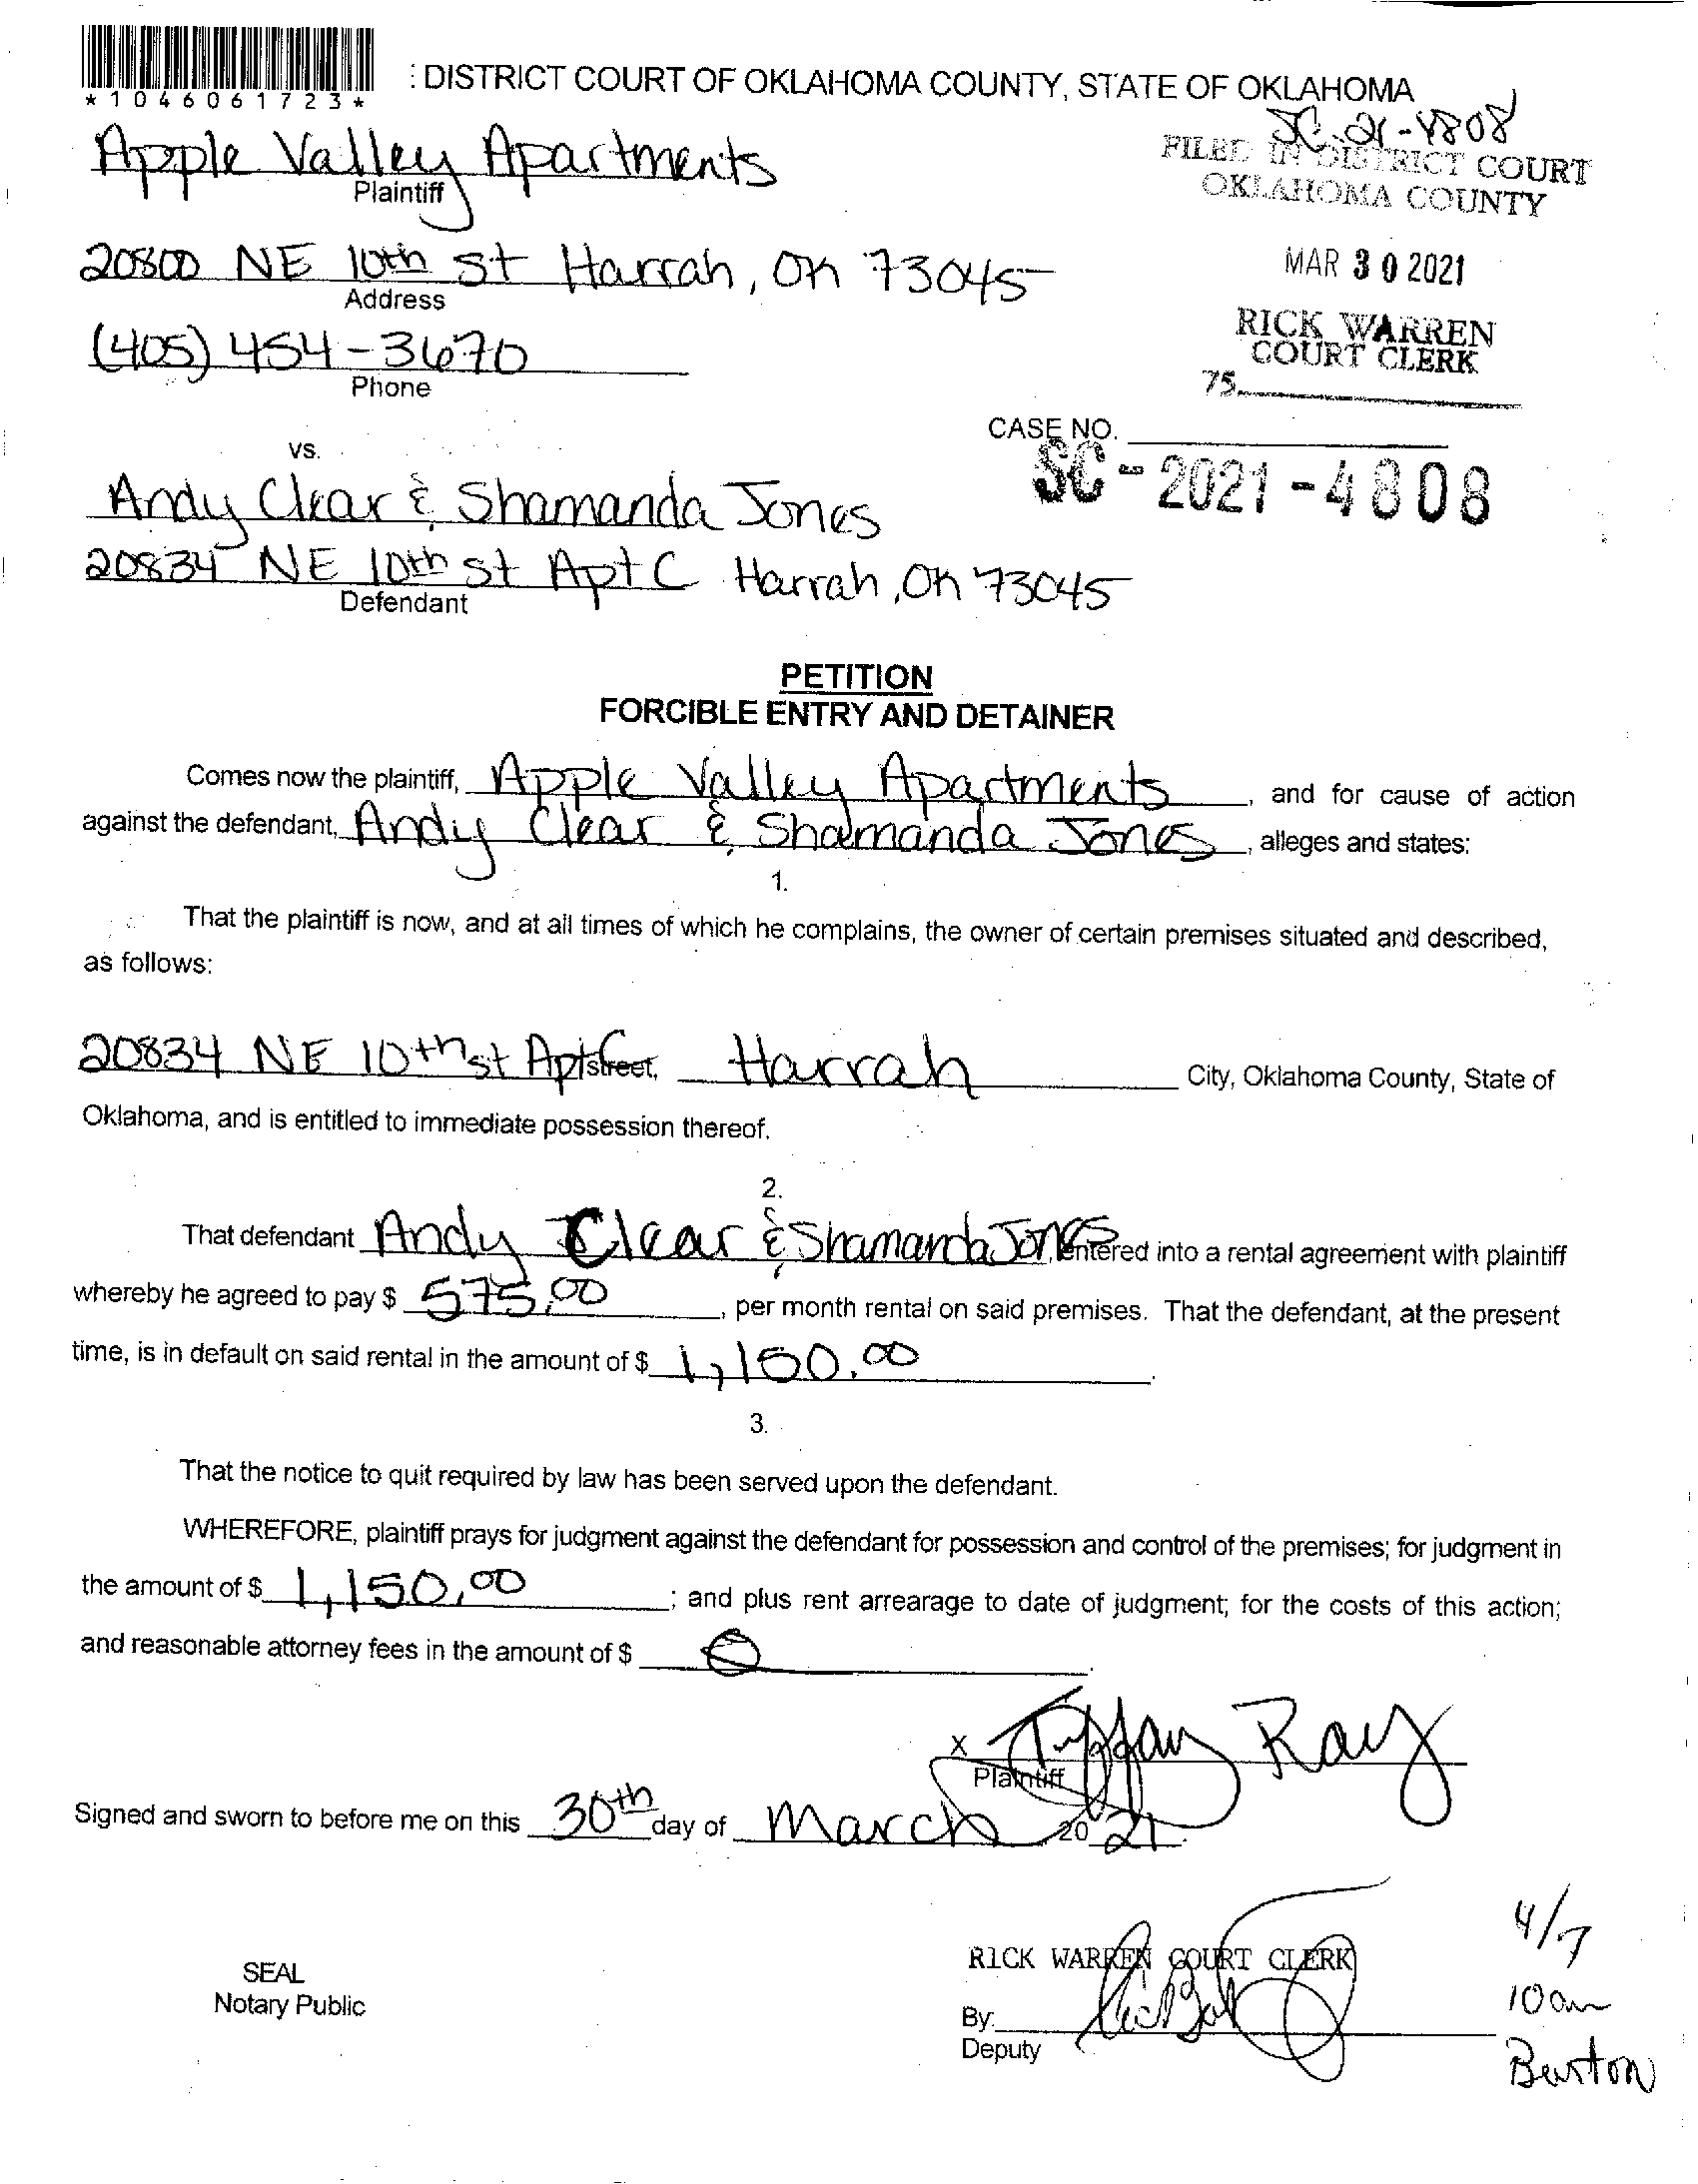 *1046061723*
: DISTRICT COURT OF OKLAHOMA COUNTY, STATE OF OKLAHOMA
SC-21-4808
Apple Valley Apartments
Plaintiff
FILED IN DISTRICT COURT
OKLAHOMA COUNTY
20800 NE 10th St Harrah, OK 73045
Address
MAR 30 2021
(405) 454-3670
Phone
RICK WARREN
COURT CLERK
75
CASE NO.
SC-2021-4808
vs.
Andy Clear & Shamanda Jones
20834 NE 10th St Apt C Harrah, OK 73045
Defendant
PETITION
FORCIBLE ENTRY AND DETAINER
Comes now the plaintiff, Apple Valley Apartments, and for cause of action
against the defendant, Andy Clear & Shamanda Jones, alleges and states:
1.
That the plaintiff is now, and at all times of which he complains, the owner of certain premises situated and described,
as follows:
20834 NE 10th st Apt C Street, Harrah City, Oklahoma County, State of
Oklahoma, and is entitled to immediate possession thereof.
2.
That defendant Andy Clear & Shamanda Jones, entered into a rental agreement with plaintiff
whereby he agreed to pay $ 575.00, per month rental on said premises. That the defendant, at the present
time, is in default on said rental in the amount of $ 1,150.00.
3.
That the notice to quit required by law has been served upon the defendant.
WHEREFORE, plaintiff prays for judgment against the defendant for possession and control of the premises; for judgment in
the amount of $ 1,150.00; and plus rent arrearage to date of judgment; for the costs of this action;
and reasonable attorney fees in the amount of $
X Tiffany Ray
Plaintiff
Signed and sworn to before me on this 30th day of March 2021.
SEAL
Notary Public
RICK WARREN COURT CLERK
By:
Deputy
4/7
10am
Burton